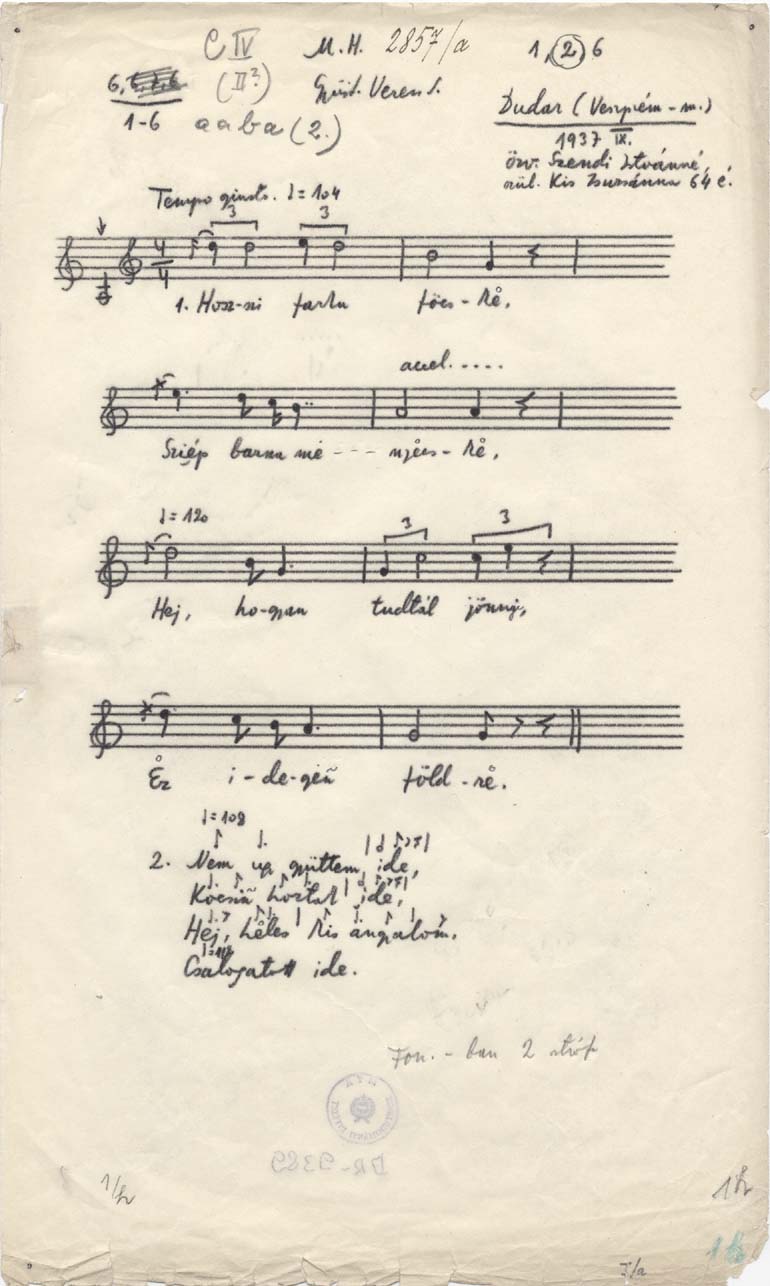 C IV M.H. 2857/a 1, 2, 6
6, (II?) Gyüjt. Veress S.
1-6 a a b a (2.) Dudar (Veszprém-m.)
1937 IX.
özv. Szendi Istvánné,
szül. Kis Zsuzsánna 64 é.
Tempo giusto. ♩= 104
3 3
4/4
1. Hosz-szi farku föcs-kė,
accel. .....
Sziép barna mė --- nyėcs-kė,
♩= 120
3 3
Hej, ho-gyan tudtál jönnyi,
Ėz i-de-gėñ föld-rė.
♩= 108
2. Nem ug gyüttem ide,
Kocsiñ hoztak ide,
Hej, kis angyalom,
Csalogatott ide.
Fon.-ban 2 stróf
DR-9389
1/a